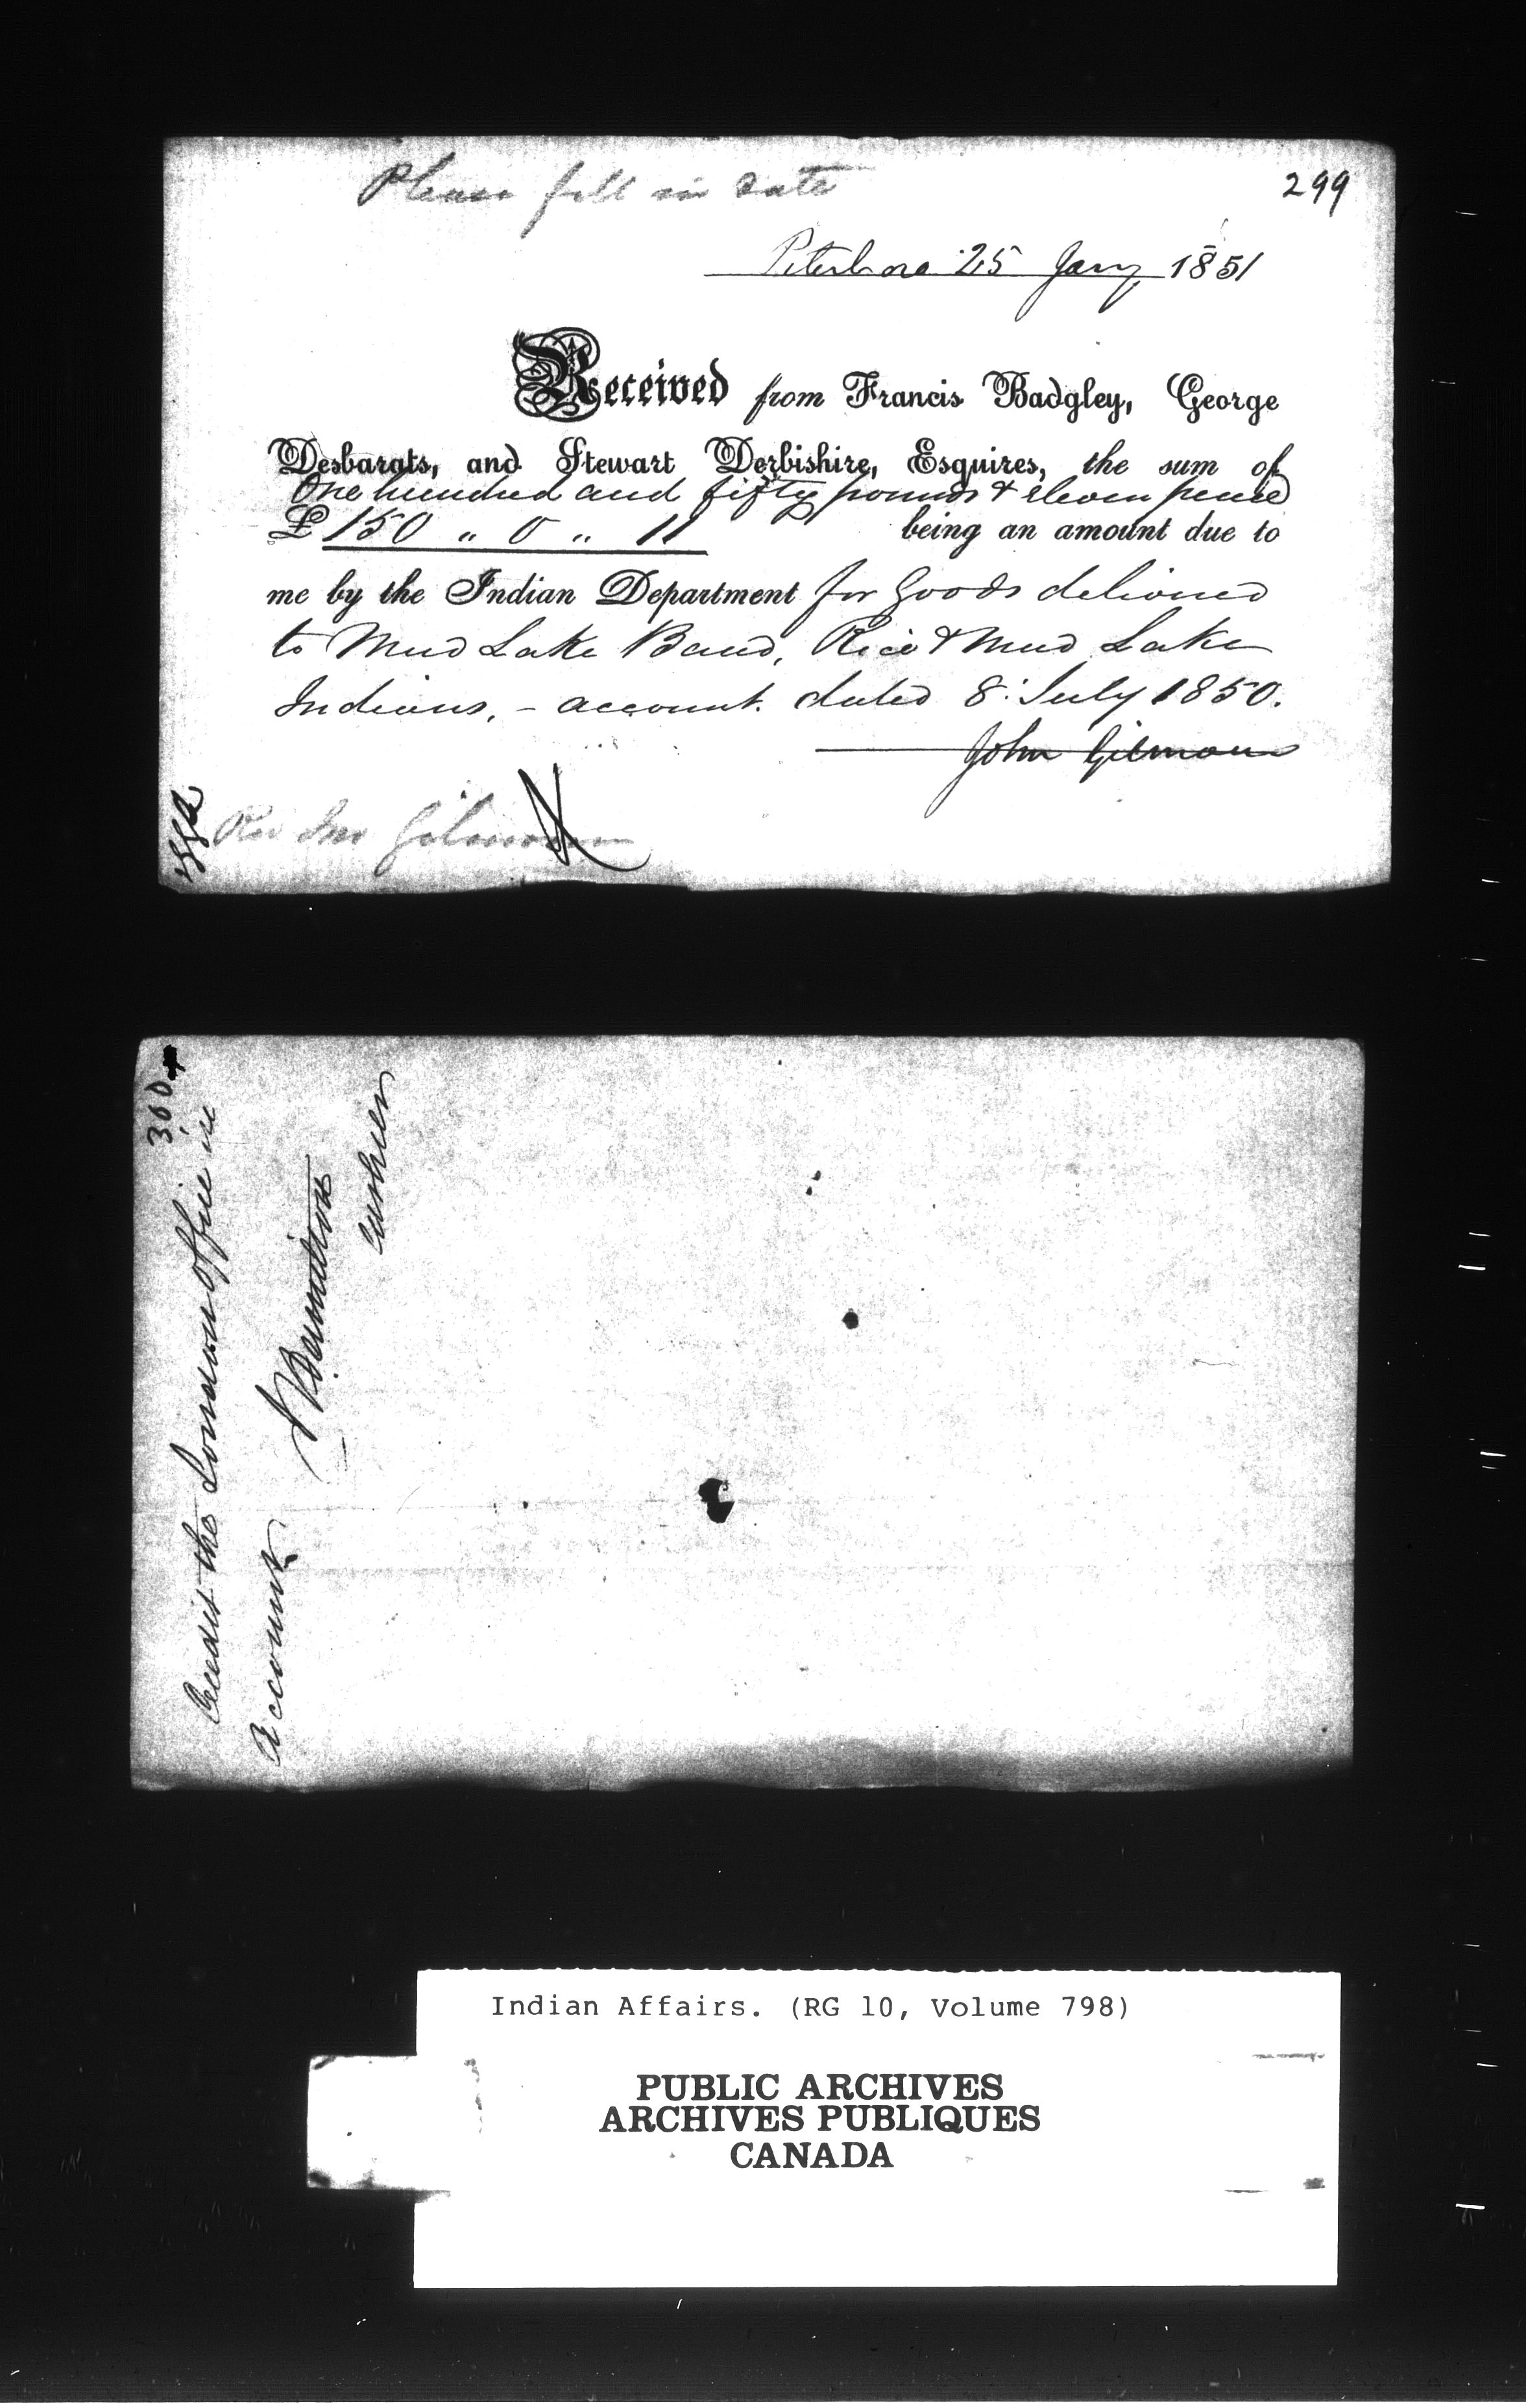 Please fill in date
299
Peterboro 25 Jany 1851
Received from Francis Badgley, George
Desbarats, and Stewart Derbishire, Esquires, the sum of
One hundred and fifty pounds & eleven pence
£ 150 " 0 " 11 being an amount due to
me by the Indian Department for Goods delivered
to Mud Lake Band, Rice & Mud Lake
Indians, - account dated 8. July 1850.
John Gilmour
Rev Jno Gilmour
300
Credit the London Office in
Account
Cashier
Indian Affairs. (RG 10, Volume 798)
PUBLIC ARCHIVES
ARCHIVES PUBLIQUES
CANADA